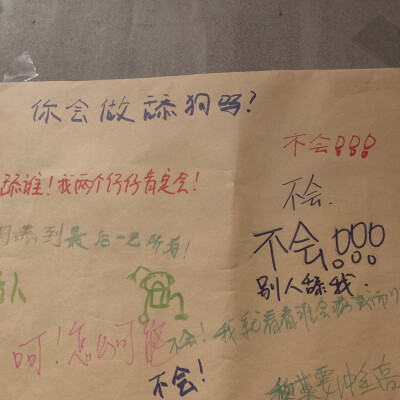 你会做舔狗吗？
不会！！！
舔谁！我两个仔仔肯定会！
不会.
舔到最后一无所有！
不会！！！
别人舔我.
人
呵！怎么可能
不会！我就看看谁会
不会！
要冲至高